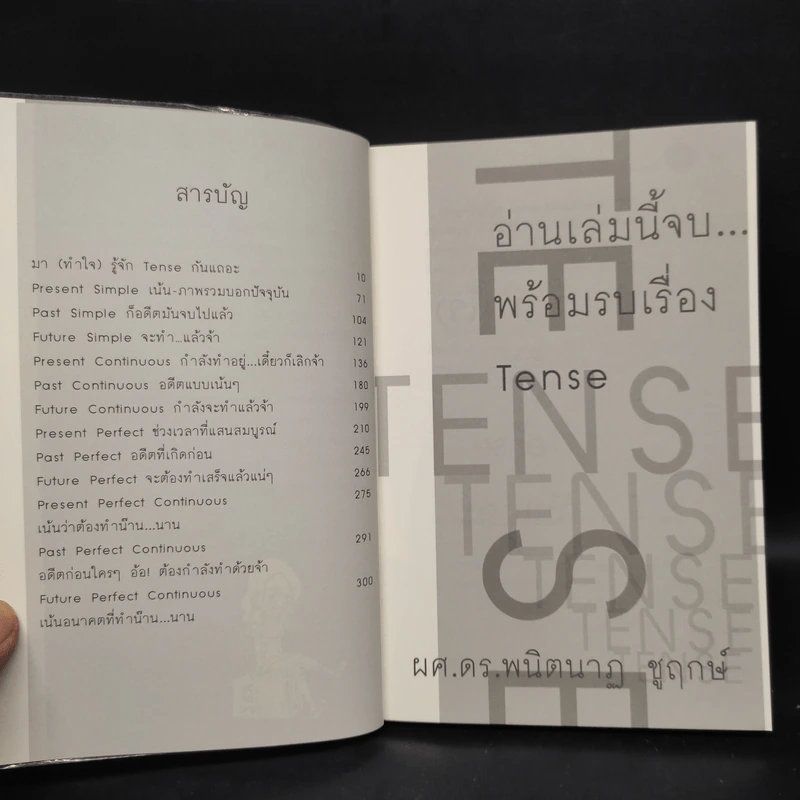 สารบัญ
มา (ทำใจ) รู้จัก Tense กันเถอะ 10
Present Simple เน้น-ภาพรวมบอกปัจจุบัน 71
Past Simple ก็อดีตมันจบไปแล้ว 104
Future Simple จะทำ...แล้วจ้า 121
Present Continuous กำลังทำอยู่...เดี๋ยวก็เลิกจ้า 136
Past Continuous อดีตแบบเน้นๆ 180
Future Continuous กำลังจะทำแล้วจ้า 199
Present Perfect ช่วงเวลาที่แสนสมบูรณ์ 210
Past Perfect อดีตที่เกิดก่อน 245
Future Perfect จะต้องทำเสร็จแล้วแน่ๆ 266
Present Perfect Continuous 275
เน้นว่าต้องทำน๊าน...นาน
Past Perfect Continuous 291
อดีตก่อนใครๆ อ้อ! ต้องกำลังทำด้วยจ้า
Future Perfect Continuous 300
เน้นอนาคตที่ทำน๊าน...นาน
อ่านเล่มนี้จบ...
พร้อมรบเรื่อง
Tense
TENSE
TENSE
TENSE
TENSE
TENSE
TENSE
ผศ.ดร.พนิตนาฏ ชูฤกษ์